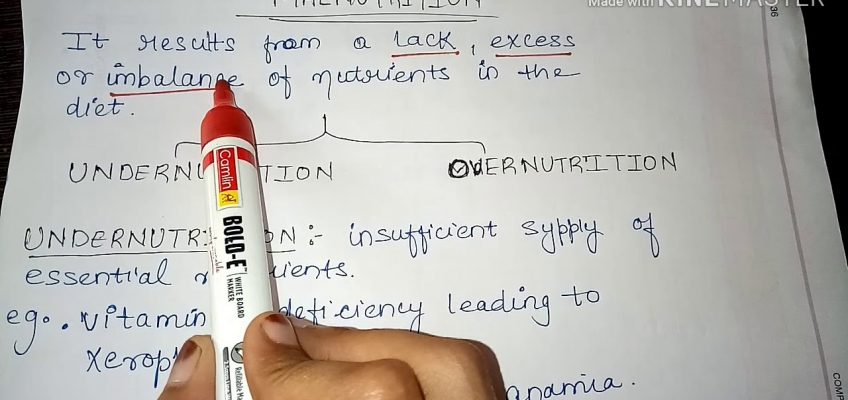 MALNUTRITION
Made with KINEMASTER
36
It results from a lack, excess
or imbalance of nutrients in the
diet.
UNDERNU TION OVERNUTRITION
UNDERNUTRI N :- insufficient sypply of
essential n ients.
eg.. Vitamin deficiency leading to
Xerop
anamia.
Camlin
BOLD-E
WHITE BOARD
MARKER
COMP